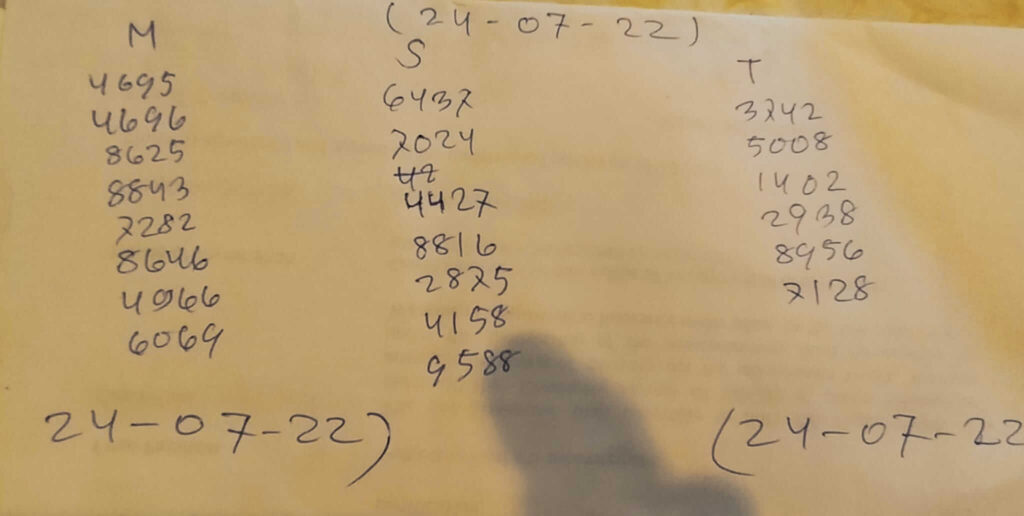 (24-07-22)
M S T
4695 6437 3742
4696 7024 5008
8625 48
8843 4427 1402
7282 8816 2938
8646 2875 8956
4966 4158 7128
6069 9588
24-07-22) (24-07-22